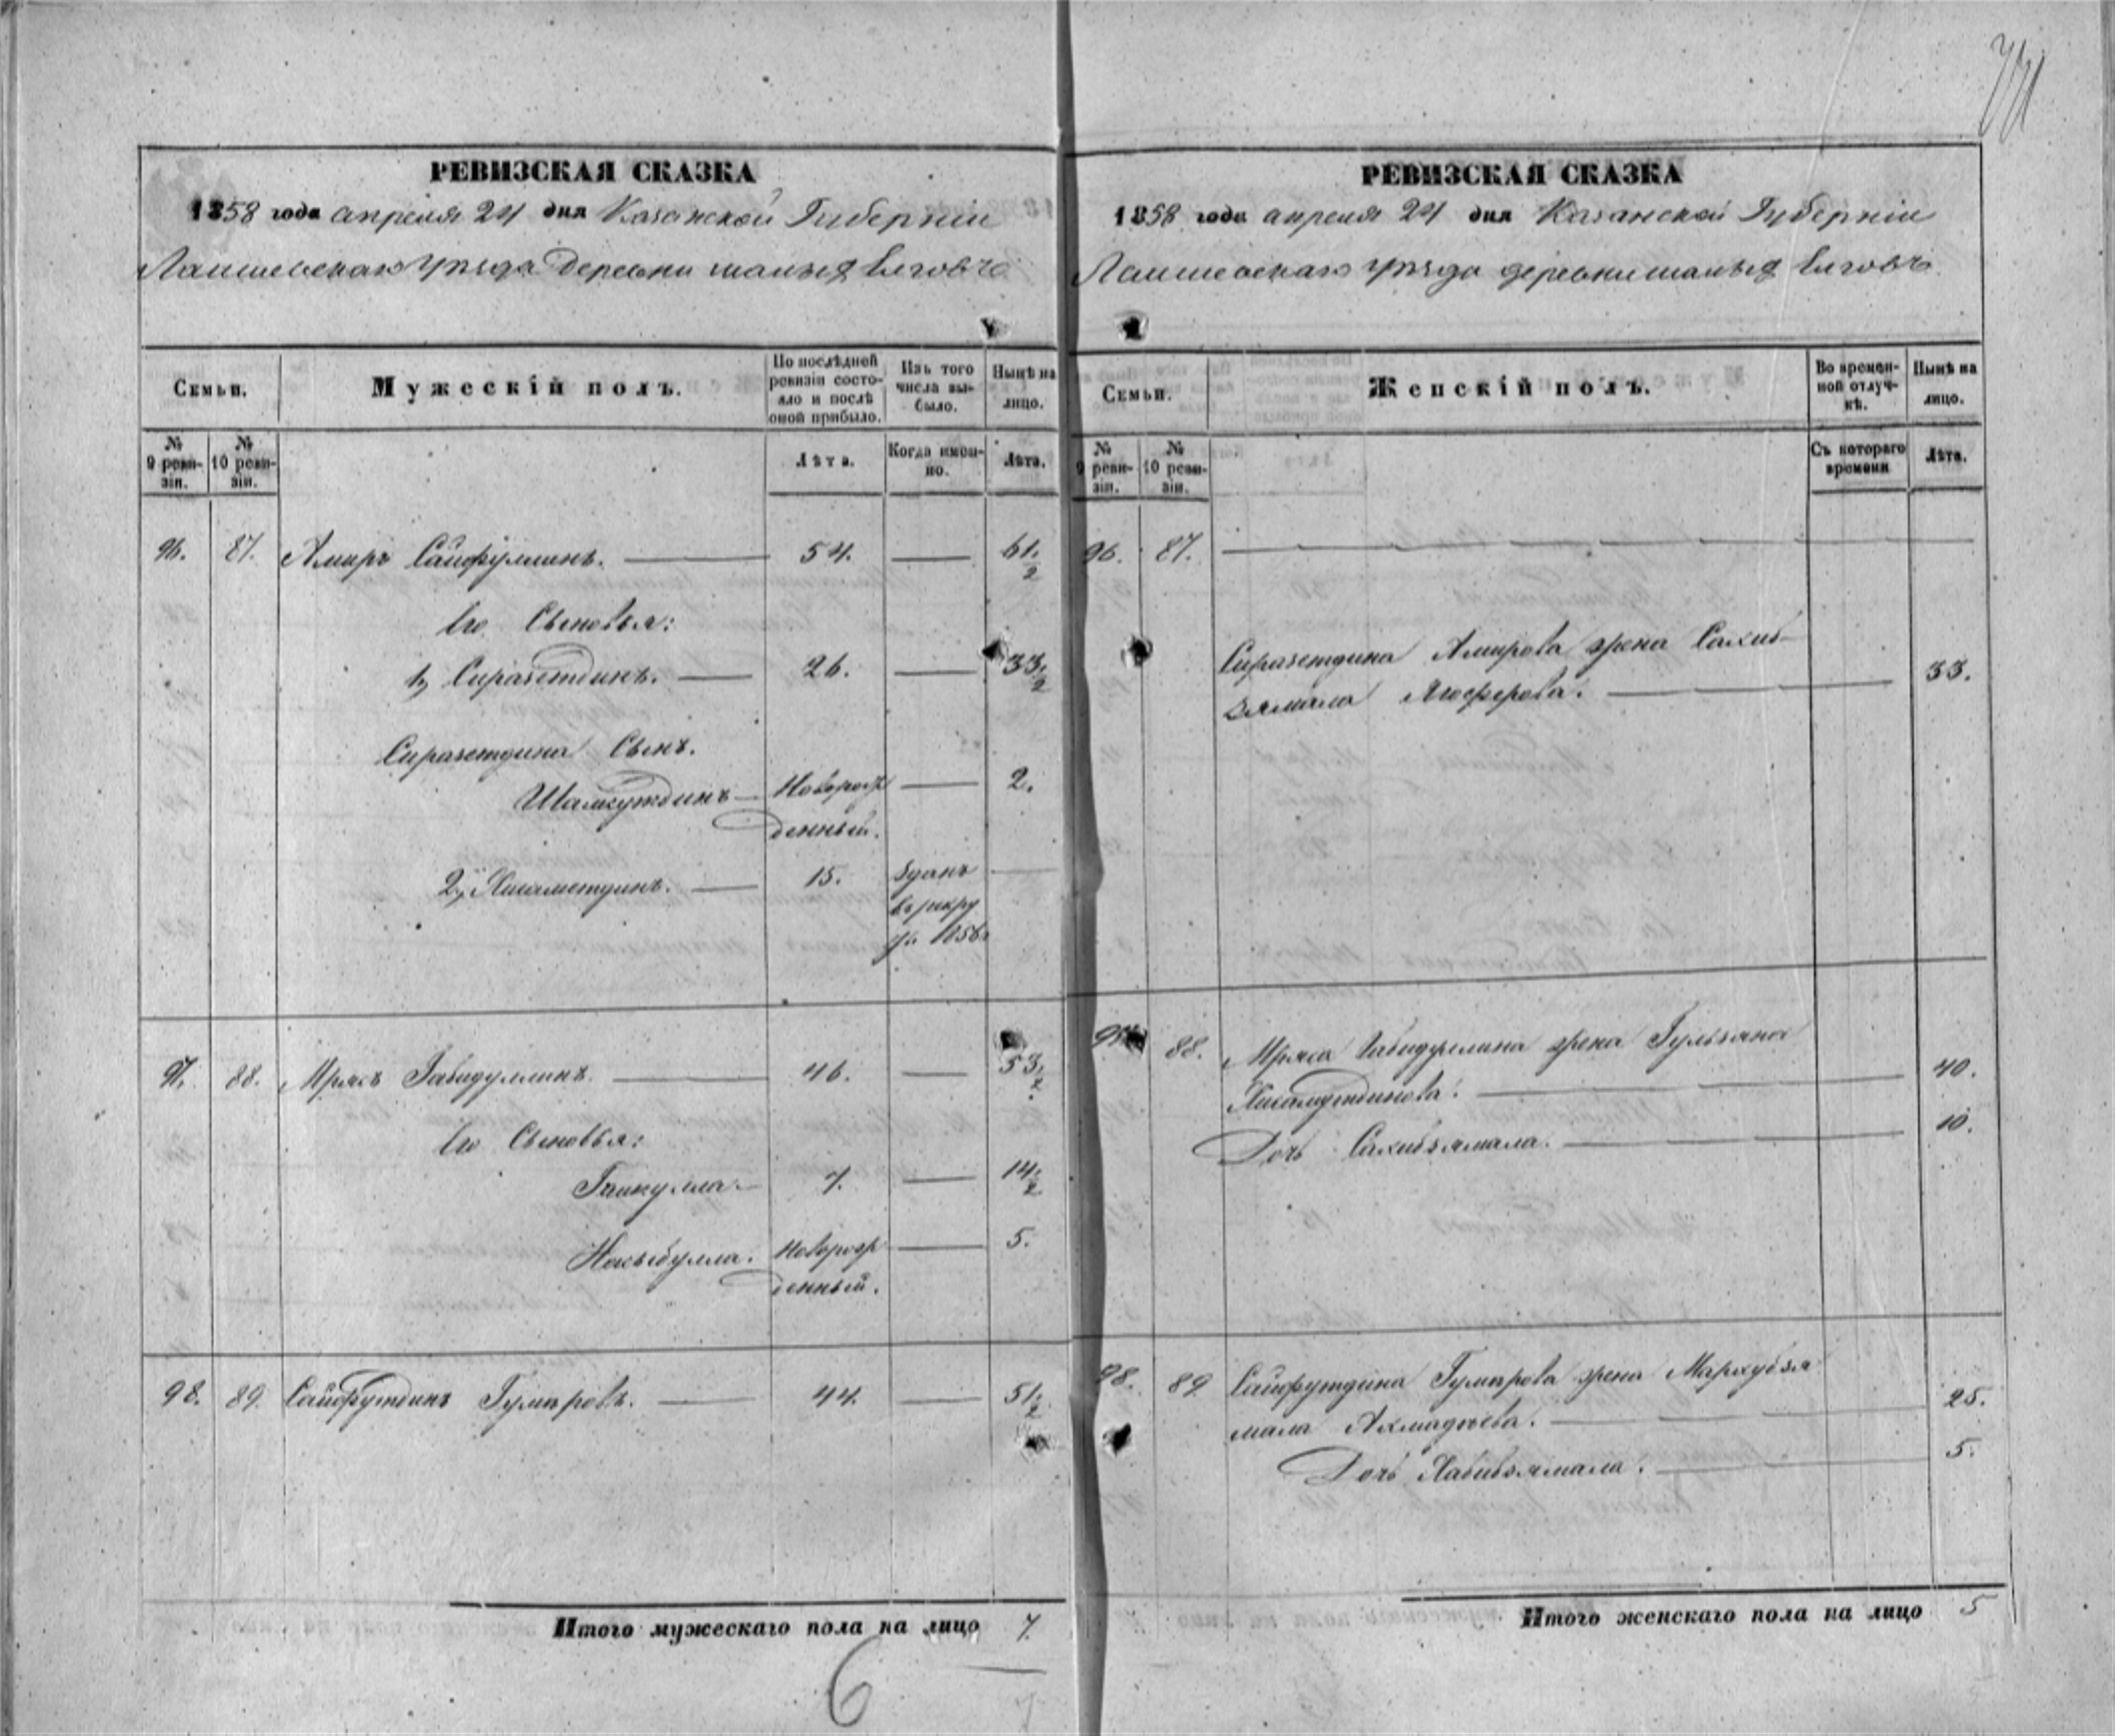 РЕВИЗСКАЯ СКАЗКА
1858 года апреля 24 дня Казанской Губернiи
Лаишевскаго Уѣзда Деревни малыхъ Елговъ
Семьи.
Мужескiй полъ.
По послѣдней ревизiи состояло и послѣ оной прибыло.
Изъ того числа выбыло.
Нынѣ на лицо.
№ 9 ревизiи.
№ 10 ревизiи.
Лѣта.
Когда именно.
Лѣта.
96. 87. Амиръ Сайфуллинъ. 54. 61 1/2
Его Сыновья:
1, Сиразетдинъ. 26. 33 1/2
Сиразетдина Сынъ.
Шамсутдинъ Новорож 2.
денный.
2, Хисаметдинъ. 15. Зданъ
въ рекру
97. 88. Мрясъ Габидуллинъ. 46. 53 1/2
Его Сыновья:
7. 14 1/2
Новорож 5.
денный.
98. 89. Сайфутдинъ Гумировъ. 44. 51 1/2
Итого мужескаго пола на лицо 7.
6
РЕВИЗСКАЯ СКАЗКА
1858 года апреля 24 дня Казанской Губернiи
Лаишевскаго уѣзда деревни малыхъ Елговъ
Семьи.
Женскiй полъ.
Во временной отлучкѣ.
Нынѣ на лицо.
№ 9 ревизiи.
№ 10 ревизiи.
Съ котораго времени
Лѣта.
96. 87.
Сиразетдина Амирова жена Сахиб-
зямала 33.
88. Мряса Габидуллина жена Гульзяна
Хисамутдинова. 40.
Дочь Сахибзямала. 10.
98. 89 Сайфутдина Гумирова жена Мархубзя
мала Ахмадѣева. 25.
Дочь Хабибзямала. 5.
Итого женскаго пола на лицо 5